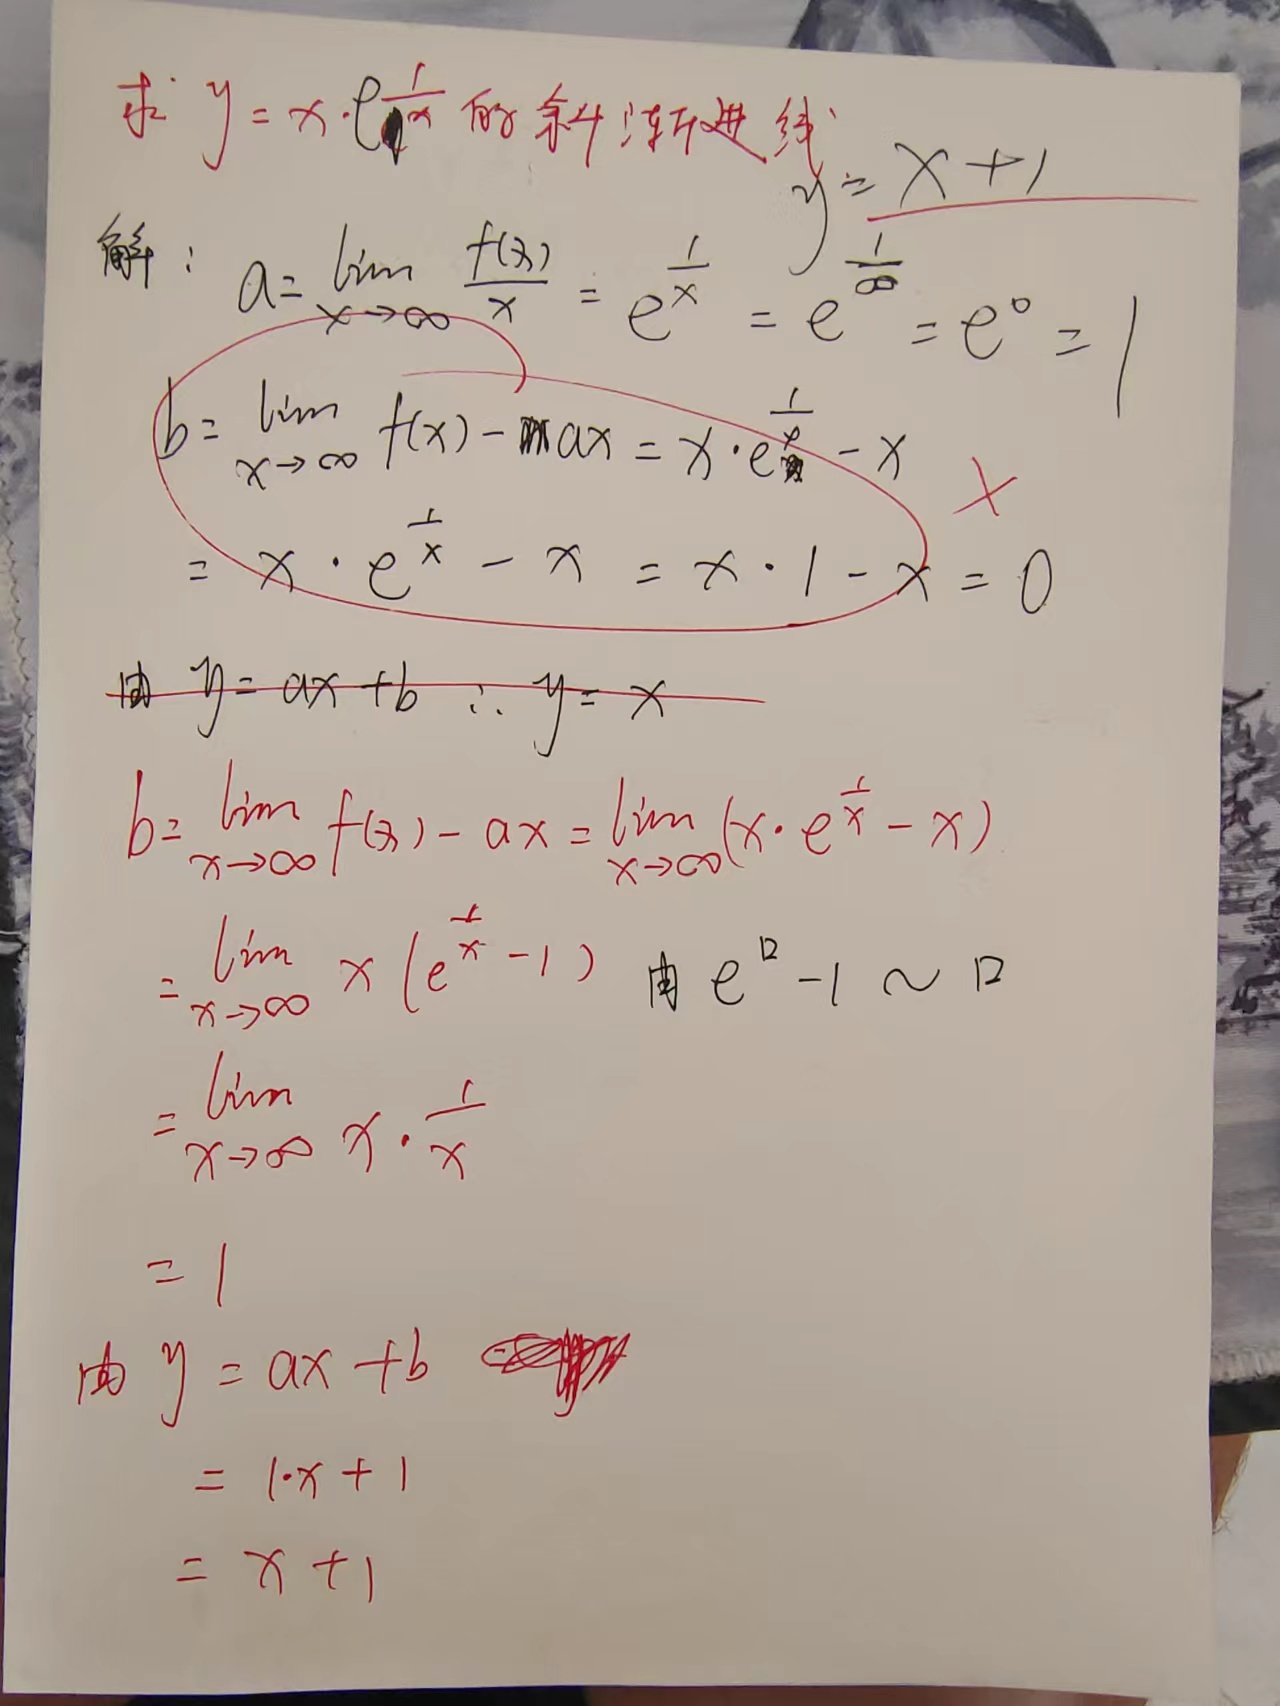 求 y = x·e^{1/x} 的斜渐进线
y = x+1
解: a = lim_{x→∞} f(x)/x = e^{1/x} = e^{1/∞} = e^0 = 1
b = lim_{x→∞} f(x) - ax = x·e^{1/x} - x
= x·e^{1/x} - x = x·1 - x = 0 ×
由 y = ax+b ∴ y = x
b = lim_{x→∞} f(x) - ax = lim_{x→∞} (x·e^{1/x} - x)
= lim_{x→∞} x(e^{1/x} - 1) 由 e^口 - 1 ~ 口
= lim_{x→∞} x·1/x
= 1
由 y = ax+b
= 1·x+1
= x+1